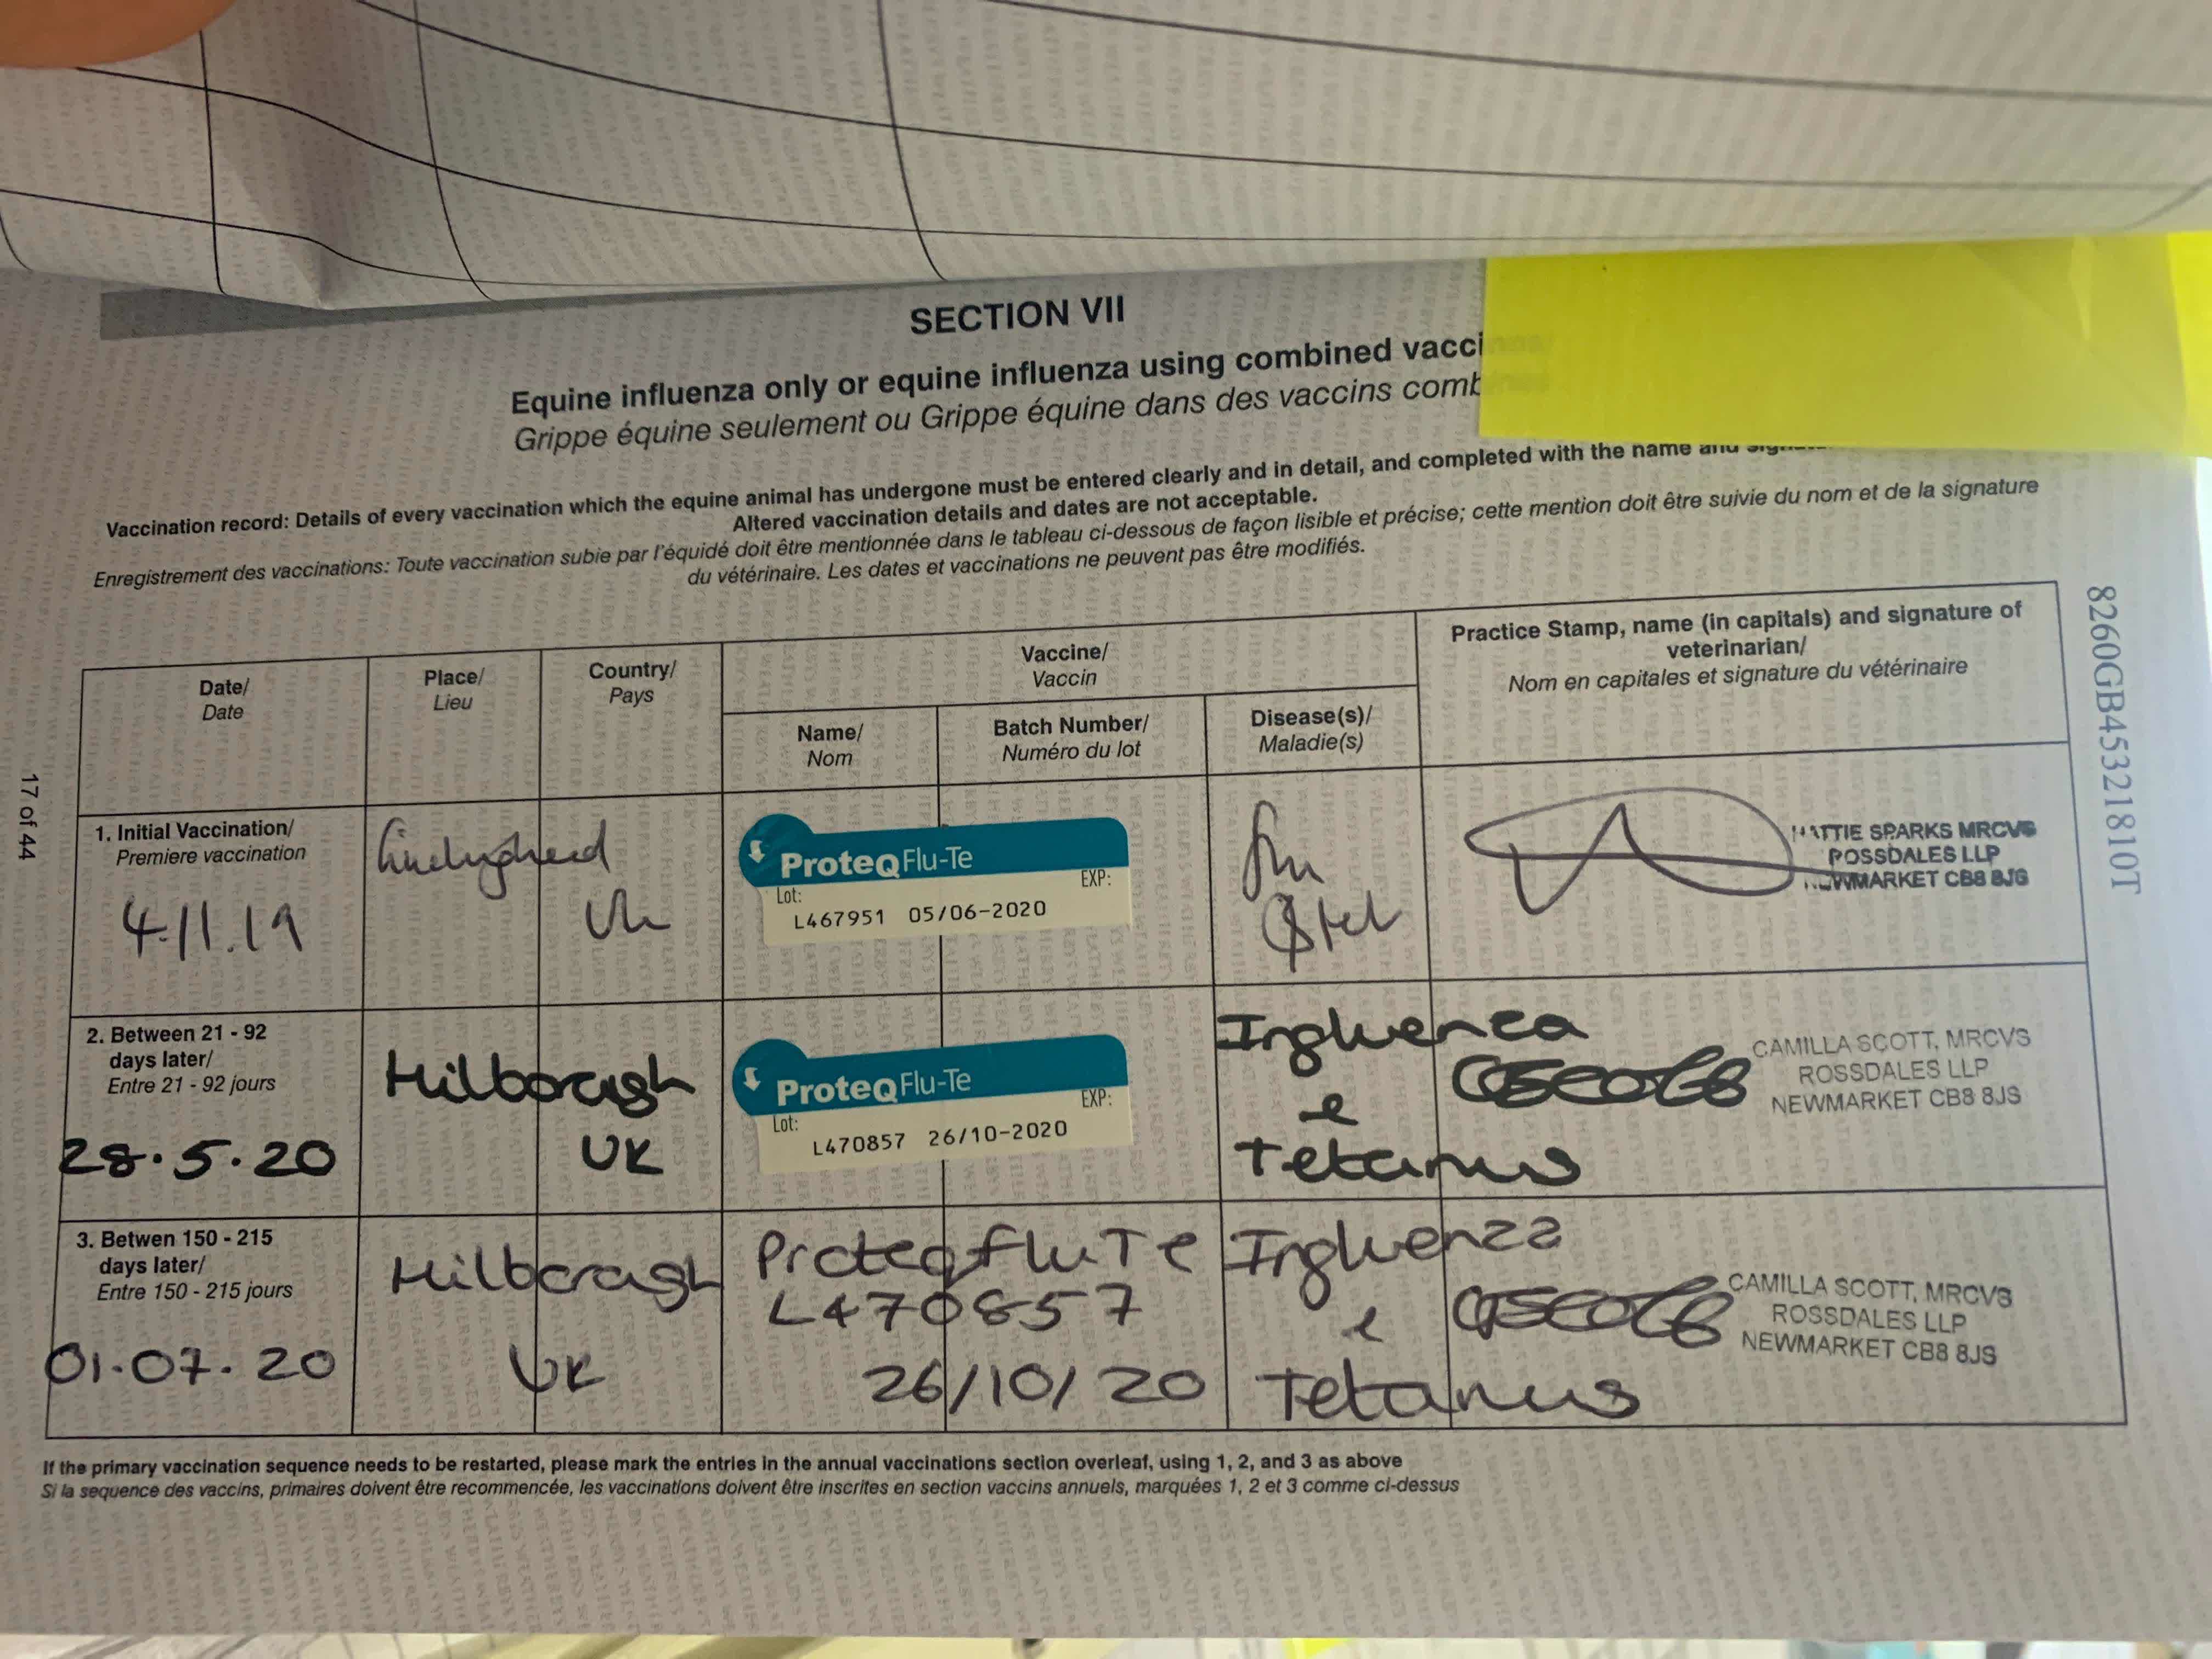 SECTION VII
Equine influenza only or equine influenza using combined vacci
Grippe équine seulement ou Grippe équine dans des vaccins comb
Vaccination record: Details of every vaccination which the equine animal has undergone must be entered clearly and in detail, and completed with the name and
Altered vaccination details and dates are not acceptable.
Enregistrement des vaccinations: Toute vaccination subie par l'équidé doit être mentionnée dans le tableau ci-dessous de façon lisible et précise; cette mention doit être suivie du nom et de la signature
du vétérinaire. Les dates et vaccinations ne peuvent pas être modifiés.
Date/
Date
Place/
Lieu
Country/
Pays
Vaccine/
Vaccin
Name/
Nom
Batch Number/
Numéro du lot
Disease(s)/
Maladie(s)
Practice Stamp, name (in capitals) and signature of
veterinarian/
Nom en capitales et signature du vétérinaire
1. Initial Vaccination/
Premiere vaccination
4.11.19
UK
ProteqFlu-Te
Lot:
EXP:
L467951 05/06-2020
flu
& tet
HATTIE SPARKS MRCVS
ROSSDALES LLP
NEWMARKET CB8 8JS
2. Between 21 - 92
days later/
Entre 21 - 92 jours
28.5.20
Hilborough
UK
ProteqFlu-Te
Lot:
EXP:
L470857 26/10-2020
Influenza
e
Tetanus
CAMILLA SCOTT, MRCVS
ROSSDALES LLP
NEWMARKET CB8 8JS
3. Betwen 150 - 215
days later/
Entre 150 - 215 jours
01.07.20
Hilborough
UK
Proteqflu Te
L470857
26/10/20
Influenza
e
Tetanus
CAMILLA SCOTT, MRCVS
ROSSDALES LLP
NEWMARKET CB8 8JS
If the primary vaccination sequence needs to be restarted, please mark the entries in the annual vaccinations section overleaf, using 1, 2, and 3 as above
Si la sequence des vaccins, primaires doivent être recommencée, les vaccinations doivent être inscrites en section vaccins annuels, marquées 1, 2 et 3 comme ci-dessus
17 of 44
8260GB45321810T